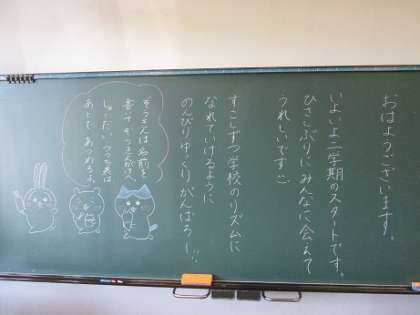 おはようございます。
いよいよ二学期のスタートです。
ひさしぶりにみんなに会えて
うれしいです
すこしずつ学校のリズムに
なれていけるように
のんびりゆっくりがんばろー!!
ぞうきんは名前を
書いて ぞうきんかけへ
しゅくだい
あとで あつめるよ。